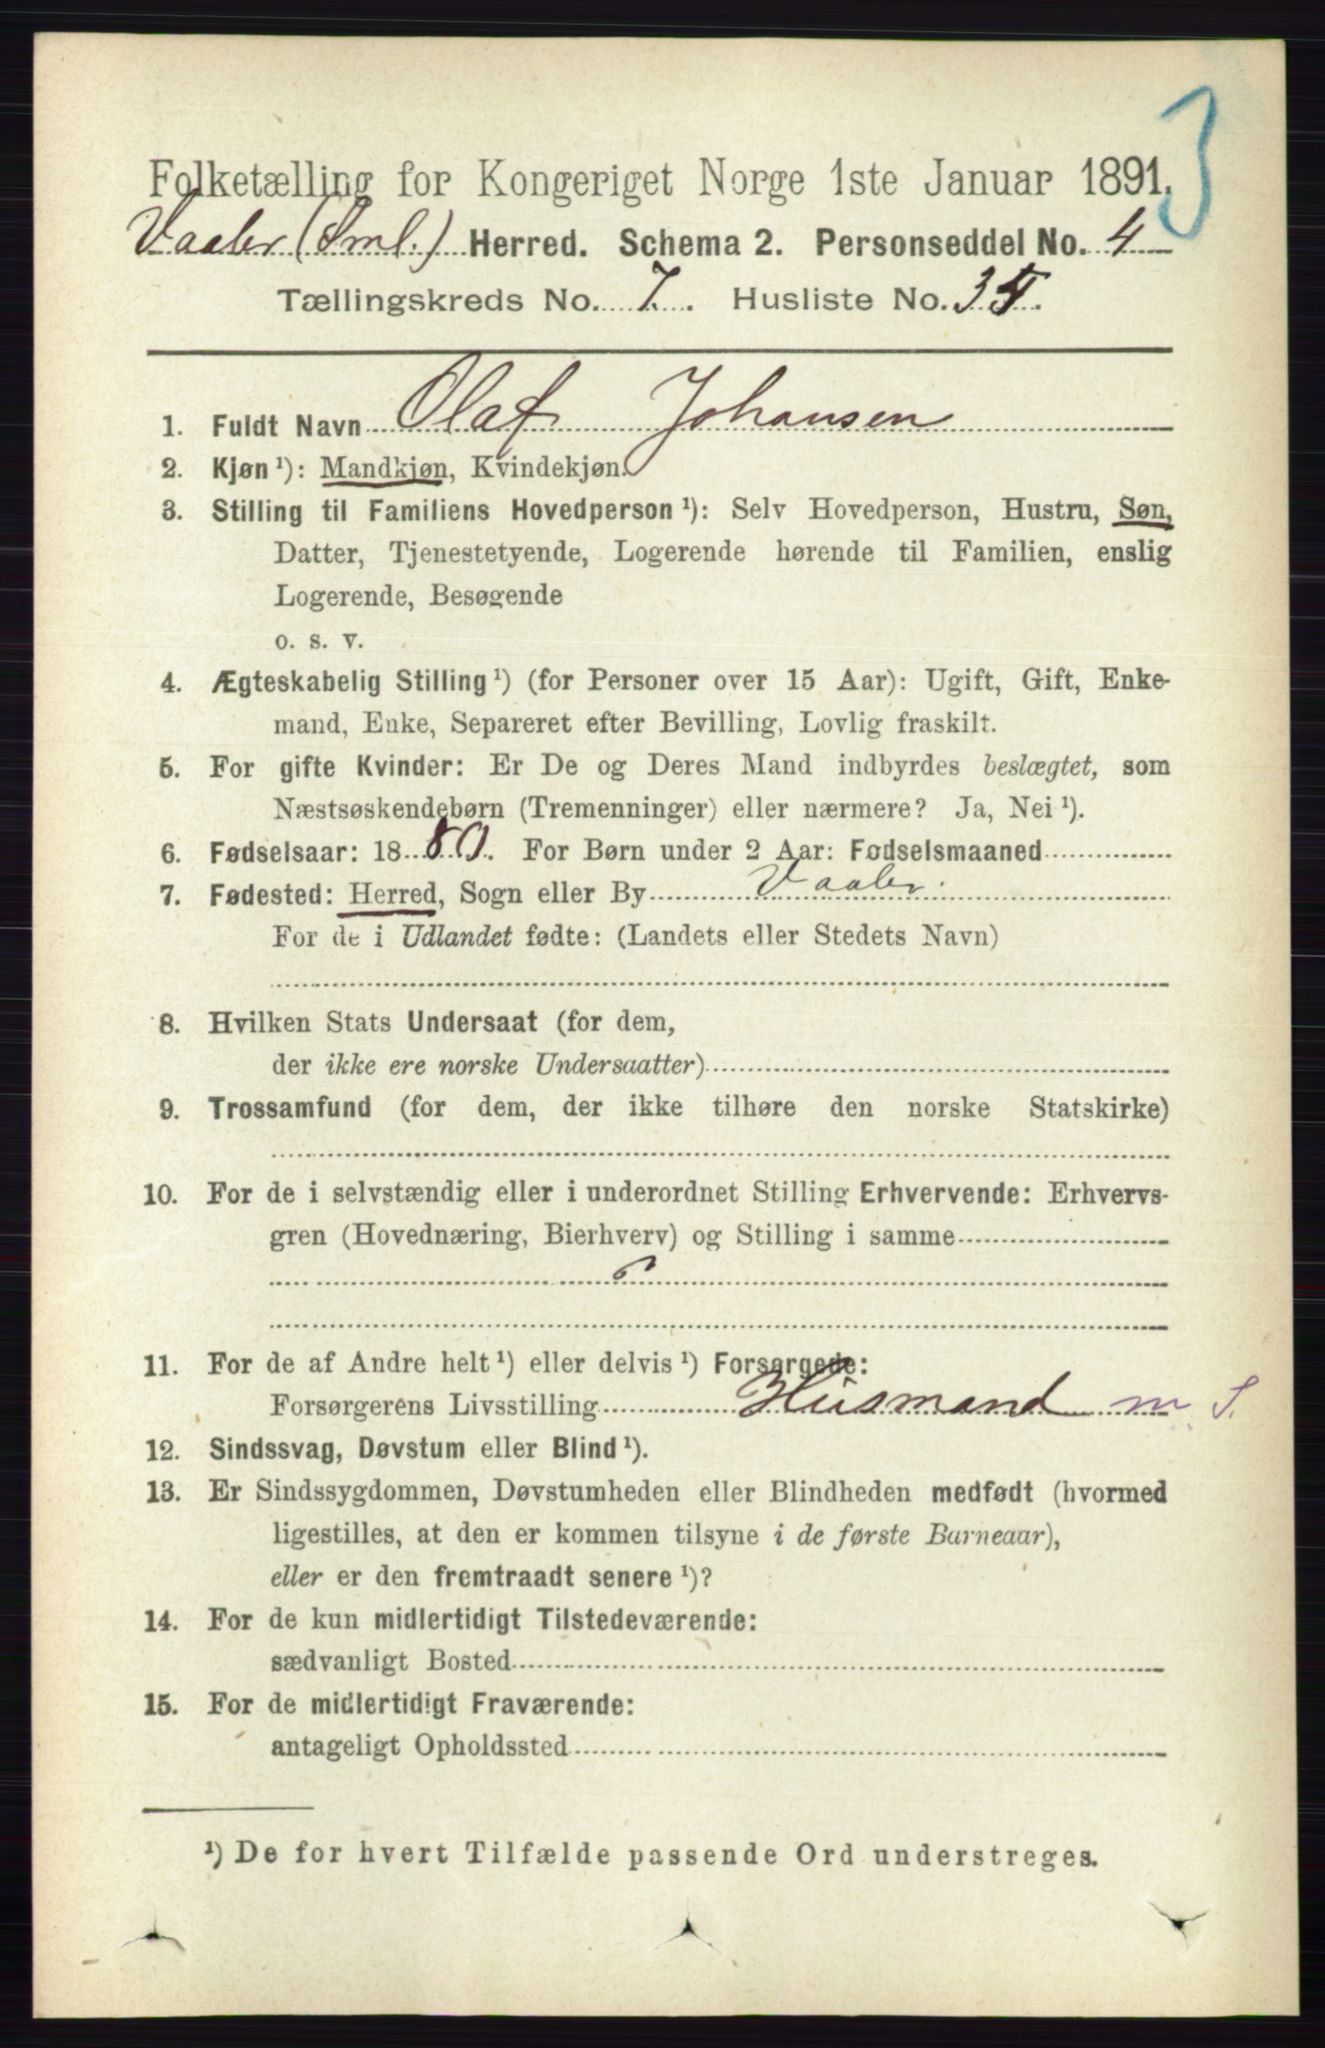 3
Folketælling for Kongeriget Norge 1ste Januar 1891.
Vaaler (Sml.) Herred. Schema 2. Personseddel No. 4
Tællingskreds No. 7. Husliste No.
1. Fuldt Navn Olaf Johansen
2. Kjøn ¹): Mandkjøn, Kvindekjøn.
3. Stilling til Familiens Hovedperson ¹): Selv Hovedperson, Hustru, Søn,
Datter, Tjenestetyende, Logerende hørende til Familien, enslig
Logerende, Besøgende
o. s. v.
4. Ægteskabelig Stilling ¹) (for Personer over 15 Aar): Ugift, Gift, Enke-
mand, Enke, Separeret efter Bevilling, Lovlig fraskilt.
5. For gifte Kvinder: Er De og Deres Mand indbyrdes beslægtet, som
Næstsøskendebørn (Tremenninger) eller nærmere? Ja, Nei ¹).
6. Fødselsaar: 1880. For Børn under 2 Aar: Fødselsmaaned
7. Fødested: Herred, Sogn eller By Vaaler.
For de i Udlandet fødte: (Landets eller Stedets Navn)
8. Hvilken Stats Undersaat (for dem,
der ikke ere norske Undersaatter)
9. Trossamfund (for dem, der ikke tilhøre den norske Statskirke)
10. For de i selvstændig eller i underordnet Stilling Erhvervende: Erhvervs-
gren (Hovednæring, Bierhverv) og Stilling i samme
11. For de af Andre helt ¹) eller delvis ¹) Forsørgede:
Forsørgerens Livsstilling Husmand m. S.
12. Sindssvag, Døvstum eller Blind ¹).
13. Er Sindssygdommen, Døvstumheden eller Blindheden medfødt (hvormed
ligestilles, at den er kommen tilsyne i de første Barneaar),
eller er den fremtraadt senere ¹)?
14. For de kun midlertidigt Tilstedeværende:
sædvanligt Bosted
15. For de midlertidigt Fraværende:
antageligt Opholdssted
¹) De for hvert Tilfælde passende Ord understreges.